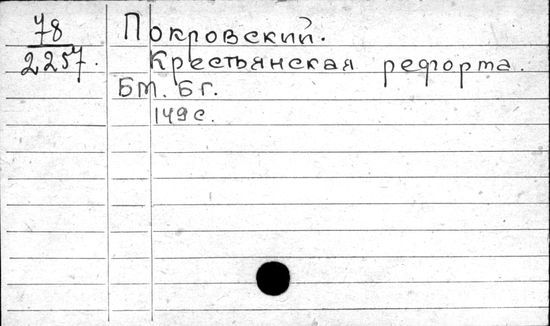 78
2257.
Покровский.
Крестьянская реформа.
Бм. Бг.
149 с.